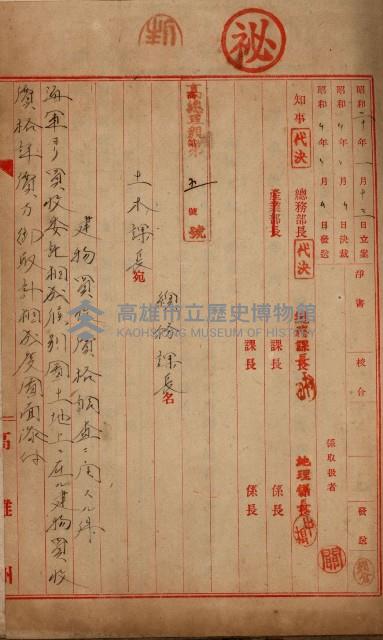 秘
昭和二十年一月十三日立案
昭和 年 月 日決裁
昭和 年 月 日發送
淨書
校合
發送
係取扱者
知事
代決
總務部長
代決
產業部長
總務課長
課長
課長
地理係長
係長
係長
高總理親第
五
號
總務課長名
土木課長宛
建物買收價格調查ニ關スル件
海軍ヨリ買收委託相成候別圖土地上ニ在ル建物買收
價格評價方御取計相成度圖面添付
高雄州
高雄市立歷史博物館
KAOHSIUNG MUSEUM OF HISTORY